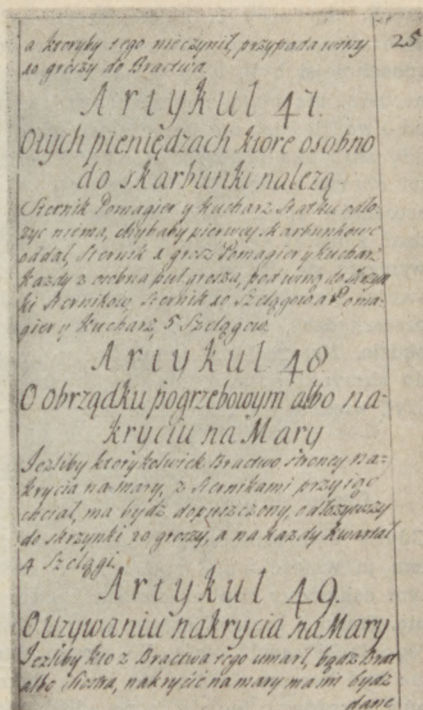 25
a ktoryby tego nieczynił, przypada winy
10 groszy do Bractwa.
Artykul 47.
Otych pieniędzach ktore osobno
do skarbunki należą
Sternik Pomagier y Kucharz Statku odlo-
zyc niema, chybaby pierwey skarbunkowe
oddal, Sternik 1 grosz Pomagier y kucharz
kazdy z osobna puł grosza, pod winą do Skrzyn
ki Sternikow, Sternik 10 Szelągow a Poma-
gier y Kucharz, 5 Szelągow.
Artykul 48
O obrządku pogrzebowym albo na-
kryciu na Mary
Jezliby ktorykolwiek Bractwo stroney na-
krycia na mary, z Sternikami przyiąc
chciał, ma bydz dopuszczony, odłozywszy
do skrzynki 20 groszy, a na kazdy kwartał
4 Szelągi.
Artykul 49.
O uzywaniu nakrycia na Mary
Jezliby kto z Bractwa tego umarł, bądz Brat
albo Siostra, nakrycie na mary ma im bydz
dane